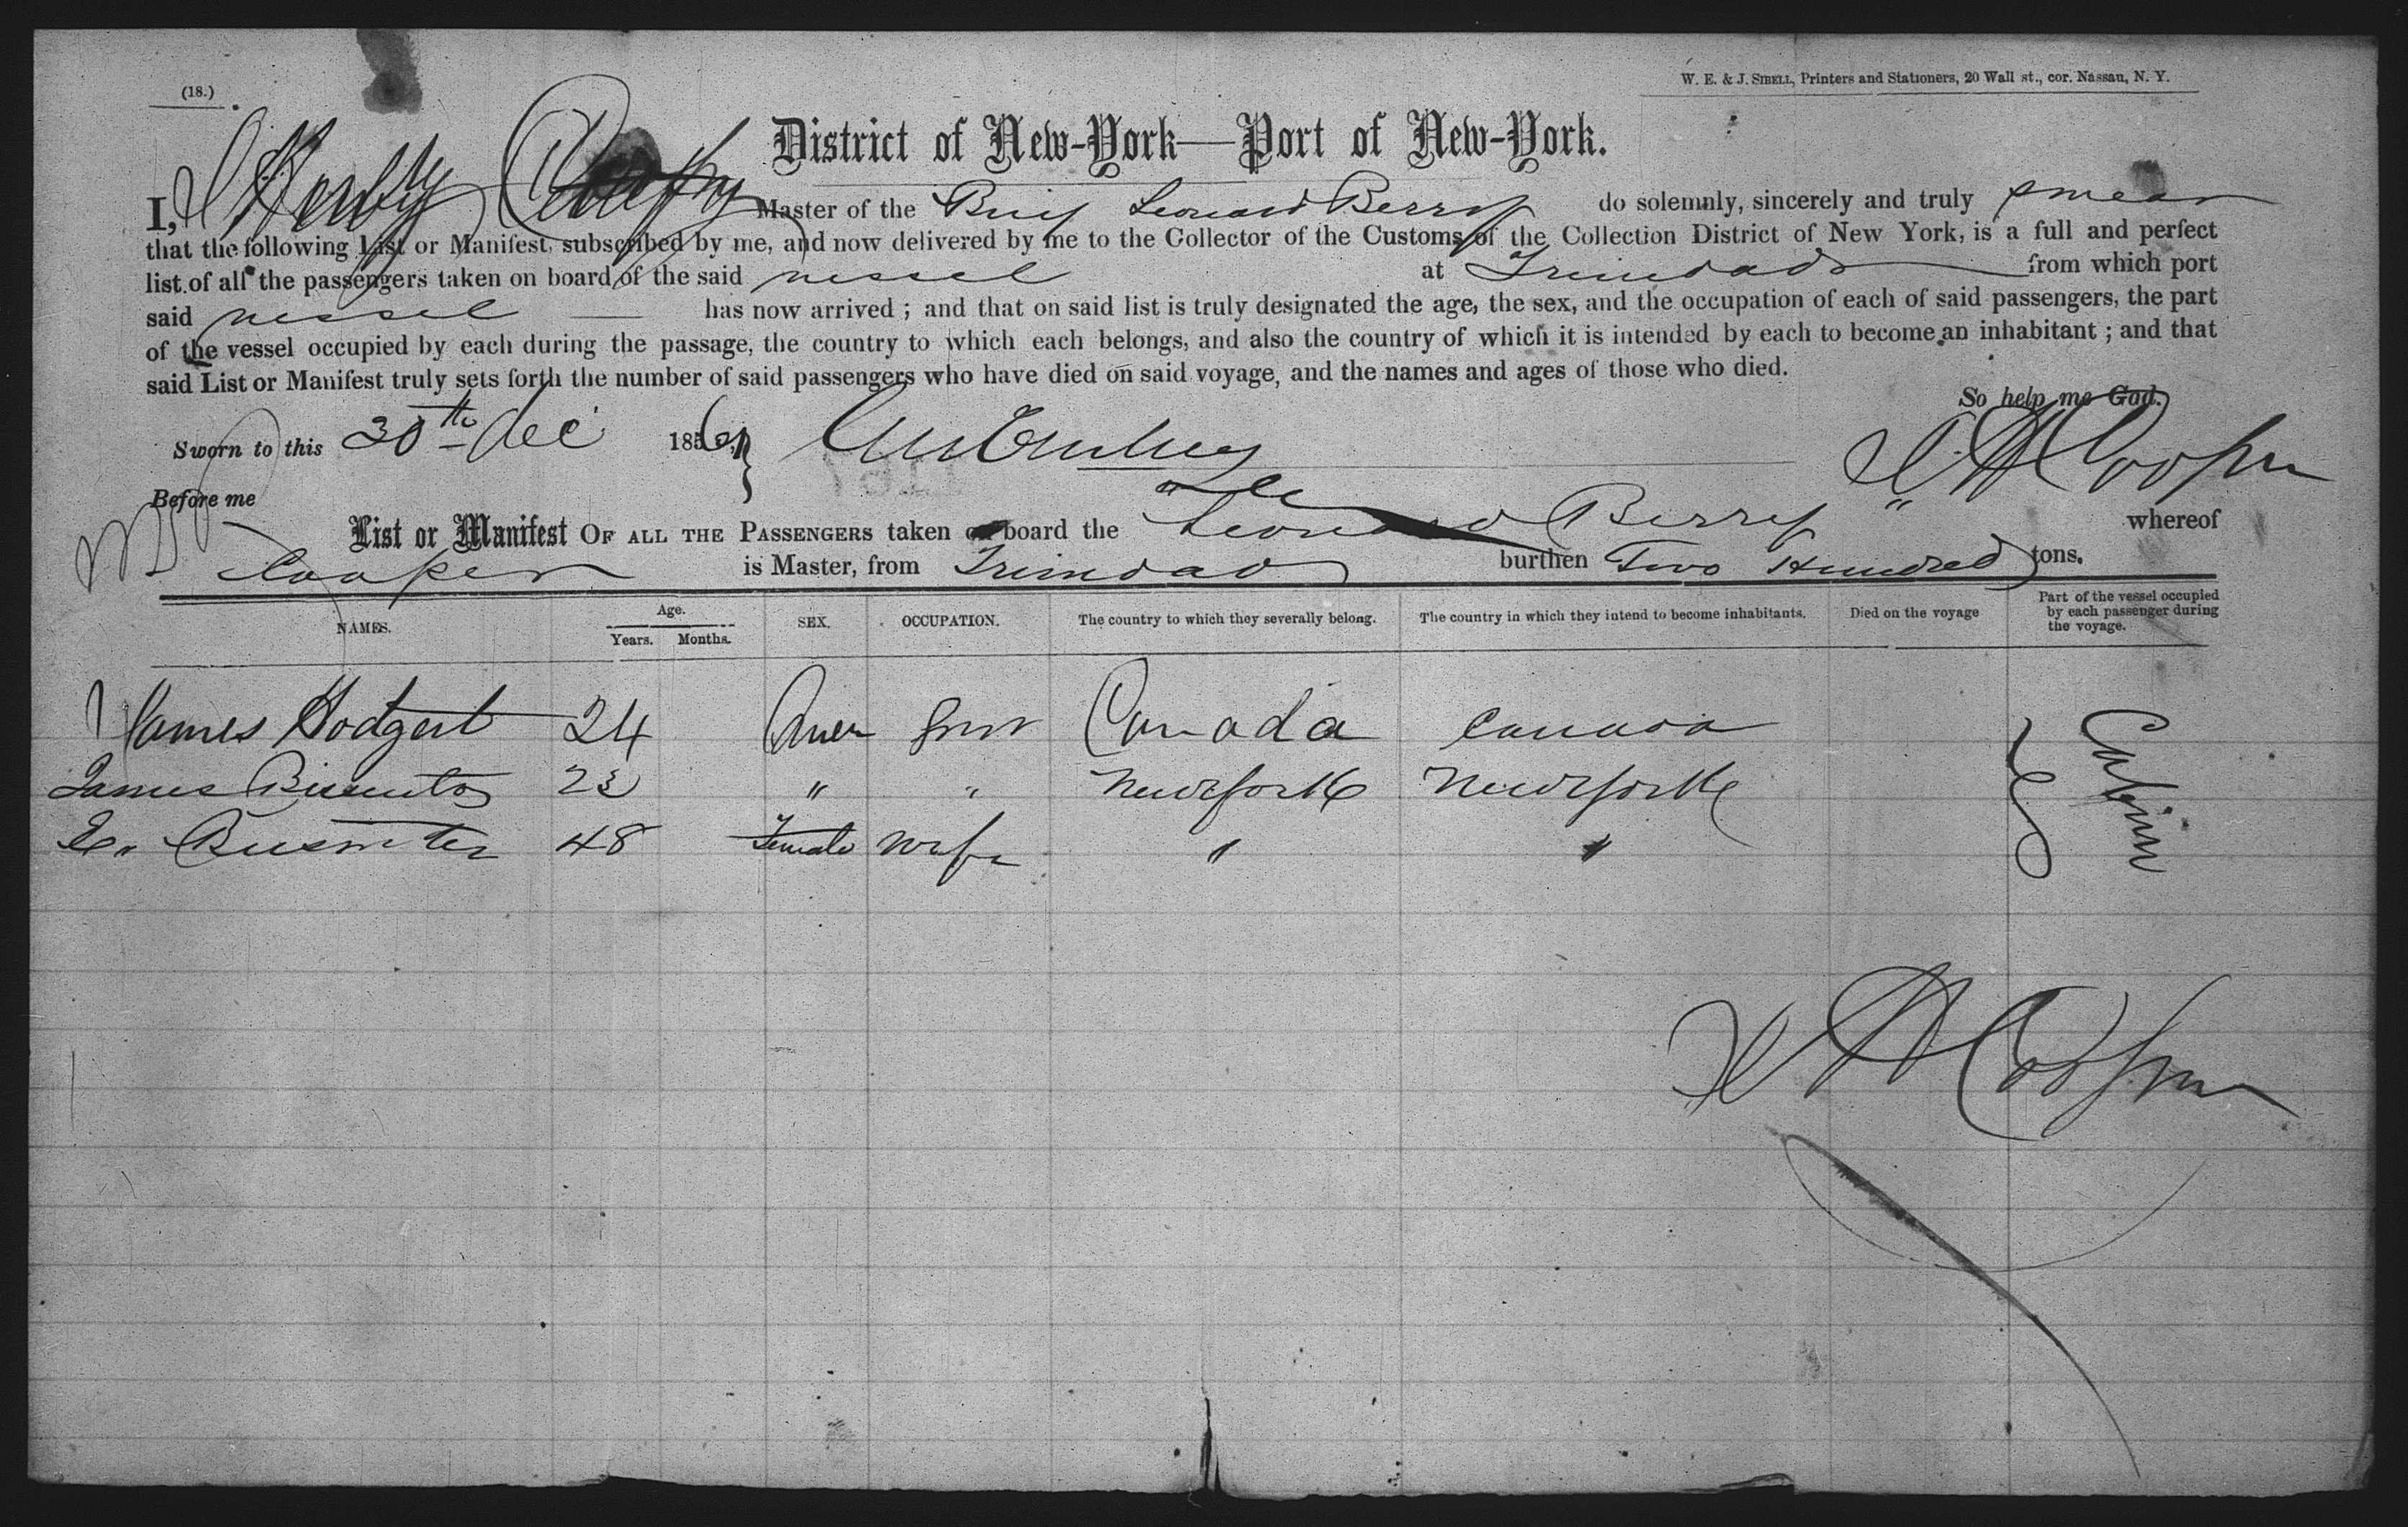 (18.)
W. E. & J. SIBELL, Printers and Stationers, 20 Wall st., cor. Nassau, N. Y.
District of New-York—Port of New-York.
I, Master of the Brig Leonard Berry do solemnly, sincerely and truly swear
that the following List or Manifest, subscribed by me, and now delivered by me to the Collector of the Customs of the Collection District of New York, is a full and perfect
list of all the passengers taken on board of the said vessel at Trinidad from which port
said vessel has now arrived ; and that on said list is truly designated the age, the sex, and the occupation of each of said passengers, the part
of the vessel occupied by each during the passage, the country to which each belongs, and also the country of which it is intended by each to become an inhabitant ; and that
said List or Manifest truly sets forth the number of said passengers who have died on said voyage, and the names and ages of those who died.
So help me God.
Sworn to this 30th Dec 186 Cooper
Before me
List or Manifest OF ALL THE PASSENGERS taken on board the Leonard Berry whereof
Cooper is Master, from Trinidad burthen Two Hundred tons.
NAMES. Age. Years. Months. SEX. OCCUPATION. The country to which they severally belong. The country in which they intend to become inhabitants. Died on the voyage Part of the vessel occupied by each passenger during the voyage.
James Hodgert 24 Canada Canada Cabin
James 23 " " New York New York
48 Female Wife " "
Cooper